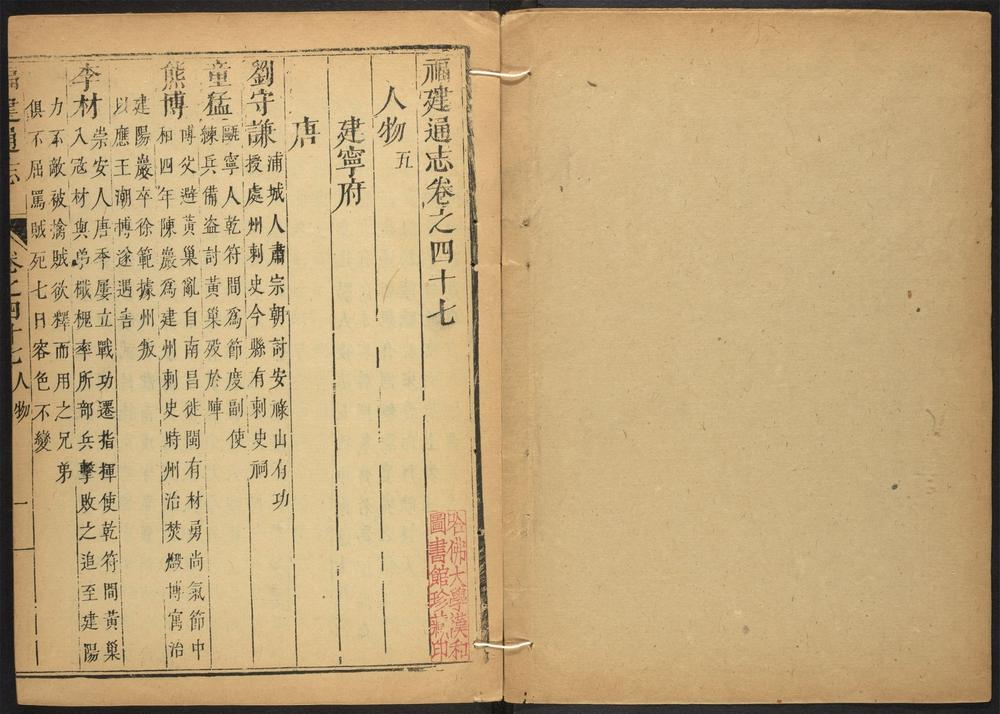 福建通志卷之四十七
人物 五
建寧府
唐
劉守謙 浦城人肅宗朝討安祿山有功
授處州刺史今縣有刺史祠
童猛 甌寧人乾符間爲節度副使
練兵備盜討黃巢歿於陣
熊博 博父避黃巢亂自南昌徙閩有材勇尚氣節中
和四年陳巖爲建州刺史時州治焚燬博寓治
建陽巖卒徐範據州叛
以應王潮博遂遇害
李材 崇安人唐季屢立戰功遷指揮使乾符間黃巢
入寇材與弟檝槐率所部兵擊敗之追至建陽
力不敵被擒賊欲釋而用之兄弟
俱不屈罵賊死七日容色不變
福建通志 卷之四十七 人物 一
哈佛大學漢和
圖書館珍藏印